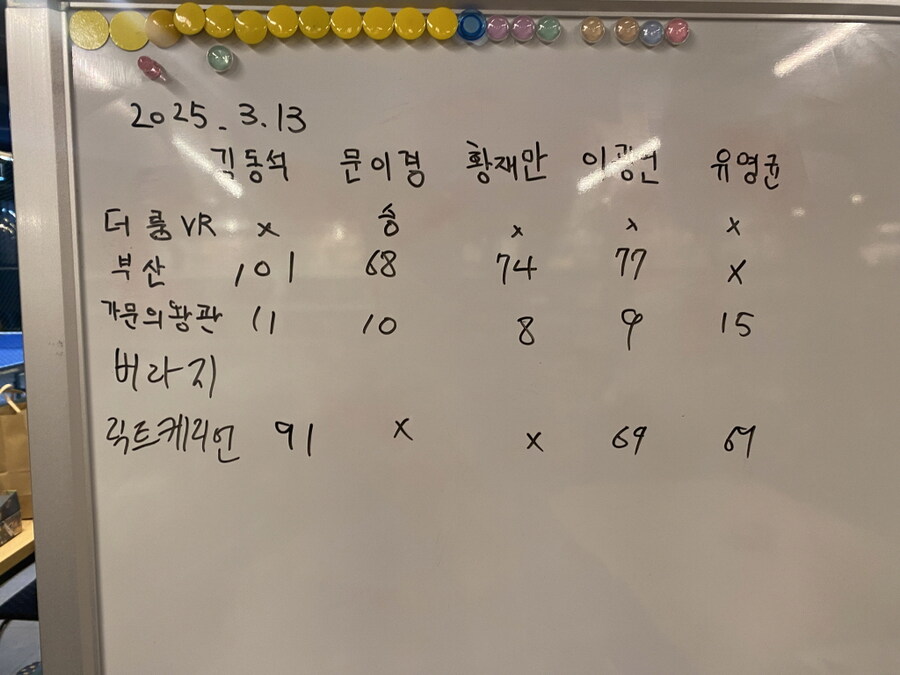 2025. 3. 13
김동석 문이경 황재만 이광언 유영균
더 룸 VR x 승 x x x
부산 101 68 74 77 x
가문의 왕관 11 10 8 9 15
버라지
릭트케리언 91 x x 69 69